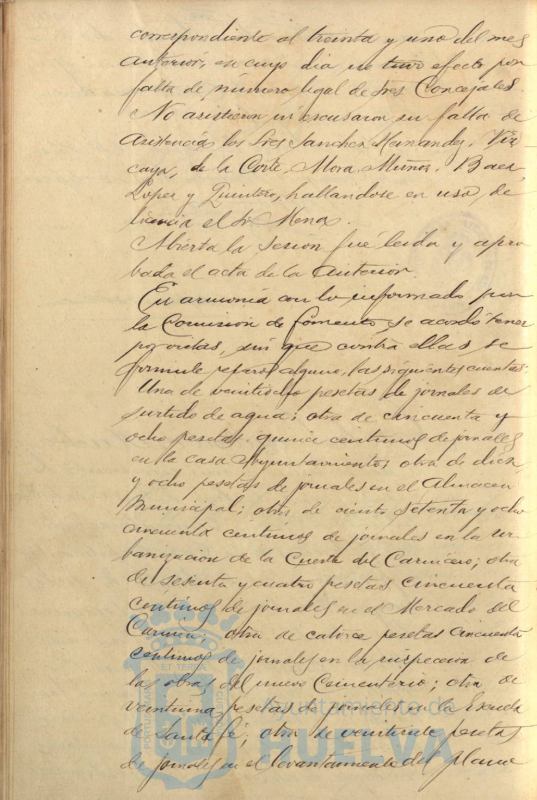 correspondiente al treinta y uno del mes
anterior, en cuyo dia no tuvo efecto por
falta de número legal de Sres Concejales.
No asistieron ni escusaron su falta de
asistencia los Sres Sanchez Hernandez, Viz
caya, de la Corte, Mora, Muñoz, Baez,
Lopez y Quintero, hallandose en uso de
licencia el Sr Mena.
Abierta la sesion fué leida y apro
bada el acta de la anterior.
En armonia con lo informado por
la Comision de Fomento se acordó tener
por vistas, sin que contra ellas se
formule reparo alguno, las siguientes cuentas:
Una de veintiocho pesetas de jornales de
surtido de agua; otra de cincuenta y
ocho pesetas quince centimos de jornales
en la casa Ayuntamiento; otra de diez
y ocho pesetas de jornales en el Almacen
Municipal; otra de ciento setenta y ocho
cincuenta centimos de jornales en la ur
banizacion de la Cuesta del Carnicero; otra
de sesenta y cuatro pesetas cincuenta
centimos de jornales en el Mercado del
Carmen; otra de catorce pesetas cincuenta
centimos de jornales en la inspeccion de
las obras del nuevo Cementerio; otra de
veintiuna pesetas de jornales a la Escuela
de Santa Fé; otra de veintiuna pesetas
de jornales en el levantamiento del plano
Ayuntamiento de
HUELVA